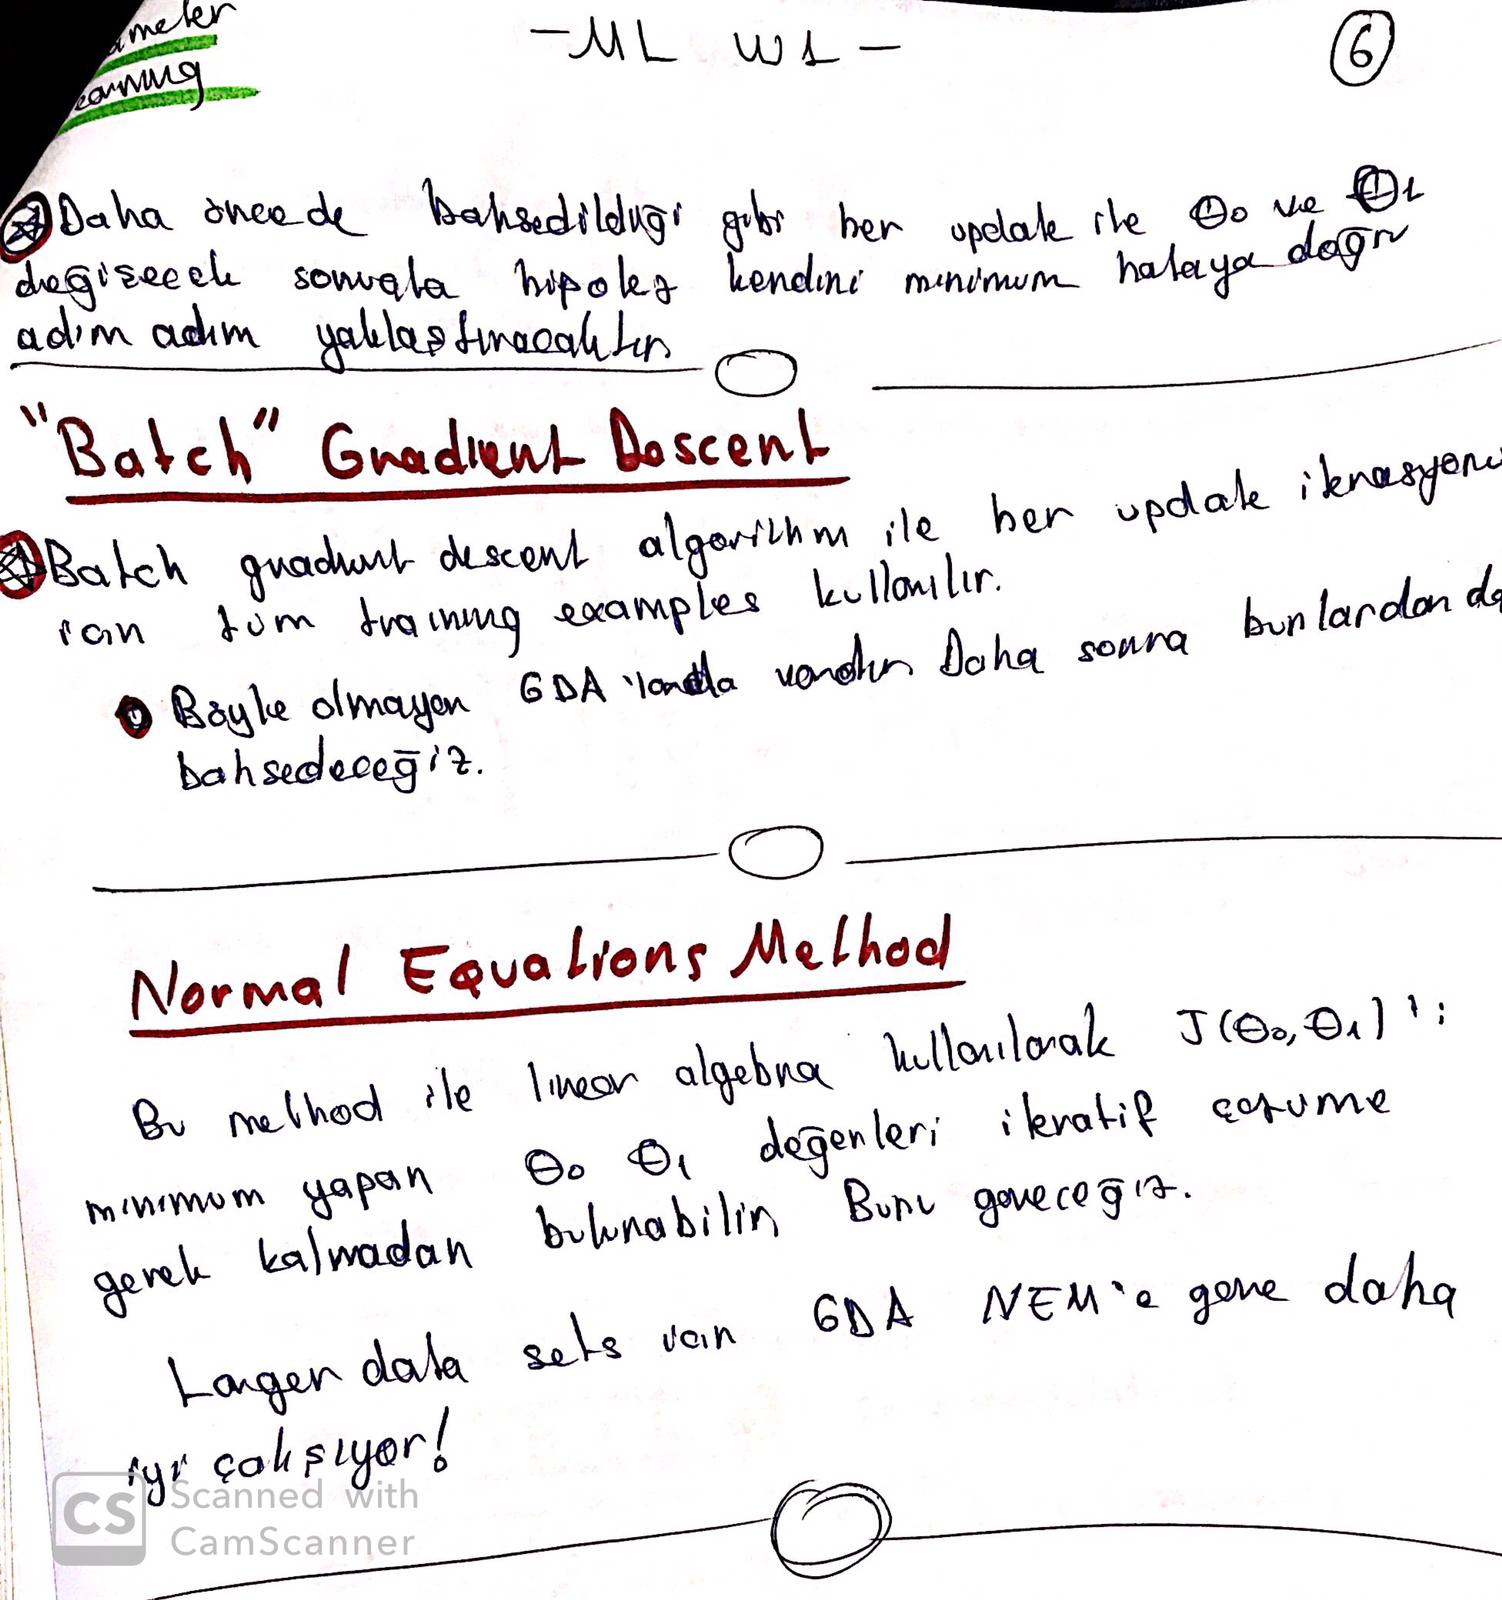 ameter
earning
- ML W1 -
6
Daha önce de bahsedildiği gibi her update ile θ0 ve θ1
değişecek sonuçta hipotez kendini minimum hataya doğru
adım adım yaklaştıracaktır
"Batch" Gradient Descent
Batch gradient descent algorithm ile her update iterasyonu
için tüm training examples kullanılır.
Böyle olmayan GDA'larda vardır Daha sonra bunlardan da
bahsedeceğiz.
Normal Equations Method
Bu method ile linear algebra kullanılarak J(θ0, θ1)'i
minimum yapan θ0 θ1 değerleri iteratif çözüme
gerek kalmadan bulunabilir Bunu göreceğiz.
Larger data sets için GDA NEM'e göre daha
iyi çalışıyor!
CS Scanned with
CamScanner